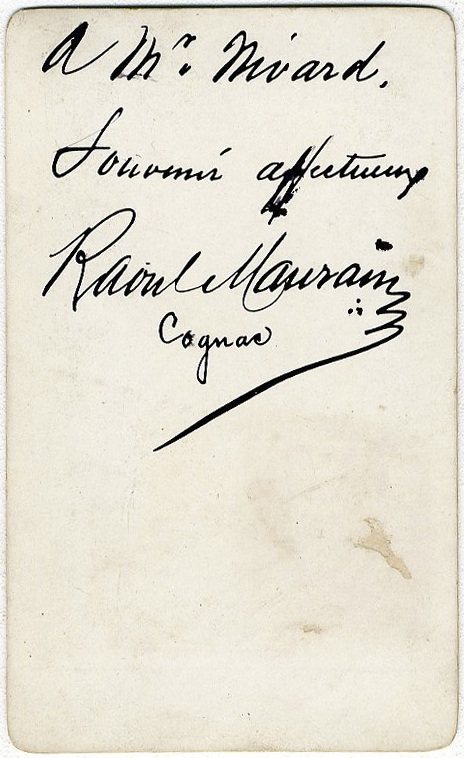 A Mr. Nivard,
Souvenir affectueux
Raoul Maurain
Cognac